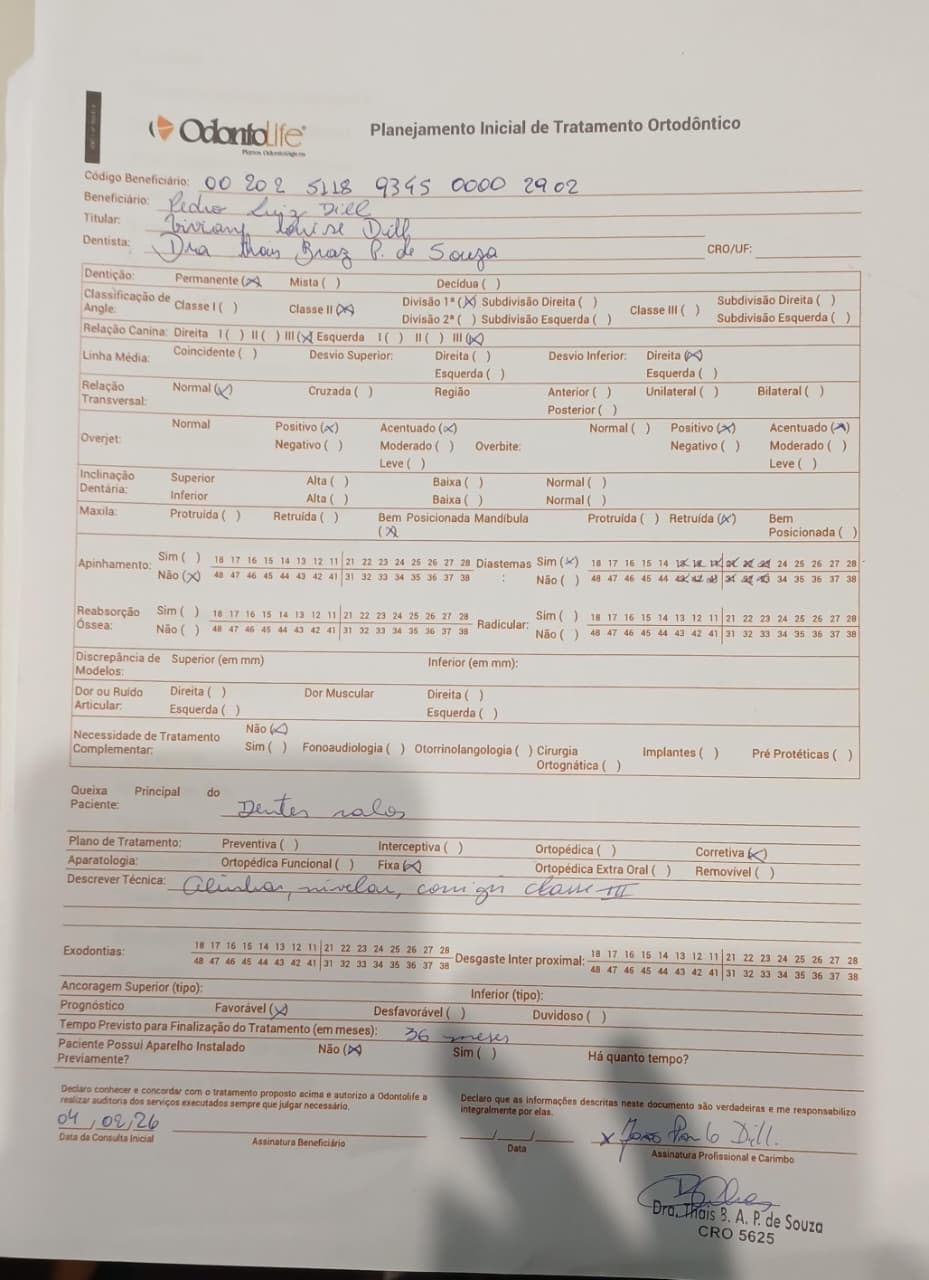 OdontoLife
Planos Odontológicos
Planejamento Inicial de Tratamento Ortodôntico
Código Beneficiário: 00 202 5118 9345 0000 2902
Beneficiário: Pedro Luiz Dill
Titular: Louise Dill
Dentista: Dra Thais Braz P. de Souza CRO/UF:
Dentição: Permanente (X) Mista ( ) Decídua ( )
Classificação de Angle: Classe I ( ) Classe II (X) Divisão 1ª (X) Subdivisão Direita ( ) Classe III ( ) Subdivisão Direita ( )
Divisão 2ª ( ) Subdivisão Esquerda ( ) Subdivisão Esquerda ( )
Relação Canina: Direita I ( ) II ( ) III (X) Esquerda I ( ) II ( ) III (X)
Linha Média: Coincidente ( ) Desvio Superior: Direita ( ) Desvio Inferior: Direita (X)
Esquerda ( ) Esquerda ( )
Relação Transversal: Normal (X) Cruzada ( ) Região Anterior ( ) Unilateral ( ) Bilateral ( )
Posterior ( )
Overjet: Normal Positivo (X) Acentuado (X) Overbite: Normal ( ) Positivo (X) Acentuado (X)
Negativo ( ) Moderado ( ) Negativo ( ) Moderado ( )
Leve ( ) Leve ( )
Inclinação Dentária: Superior Alta ( ) Baixa ( ) Normal ( )
Inferior Alta ( ) Baixa ( ) Normal ( )
Maxila: Protruída ( ) Retruída ( ) Bem Posicionada (X) Mandíbula Protruída ( ) Retruída (X) Bem Posicionada ( )
Apinhamento: Sim ( ) 18 17 16 15 14 13 12 11 21 22 23 24 25 26 27 28 Diastemas: Sim (X) 18 17 16 15 14 13 12 11 21 22 23 24 25 26 27 28
Não (X) 48 47 46 45 44 43 42 41 31 32 33 34 35 36 37 38 Não ( ) 48 47 46 45 44 43 42 41 31 32 33 34 35 36 37 38
Reabsorção Óssea: Sim ( ) 18 17 16 15 14 13 12 11 21 22 23 24 25 26 27 28 Radicular: Sim ( ) 18 17 16 15 14 13 12 11 21 22 23 24 25 26 27 28
Não ( ) 48 47 46 45 44 43 42 41 31 32 33 34 35 36 37 38 Não ( ) 48 47 46 45 44 43 42 41 31 32 33 34 35 36 37 38
Discrepância de Modelos: Superior (em mm) Inferior (em mm):
Dor ou Ruído Articular: Direita ( ) Dor Muscular Direita ( )
Esquerda ( ) Esquerda ( )
Necessidade de Tratamento Complementar: Não (X)
Sim ( ) Fonoaudiologia ( ) Otorrinolangologia ( ) Cirurgia Ortognática ( ) Implantes ( ) Pré Protéticas ( )
Queixa Principal do Paciente: Dentes ralos
Plano de Tratamento: Preventiva ( ) Interceptiva ( ) Ortopédica ( ) Corretiva (X)
Aparatologia: Ortopédica Funcional ( ) Fixa (X) Ortopédica Extra Oral ( ) Removível ( )
Descrever Técnica: Alinhar, nivelar, corrigir classe III
Exodontias: 18 17 16 15 14 13 12 11 21 22 23 24 25 26 27 28 Desgaste Inter proximal: 18 17 16 15 14 13 12 11 21 22 23 24 25 26 27 28
48 47 46 45 44 43 42 41 31 32 33 34 35 36 37 38 48 47 46 45 44 43 42 41 31 32 33 34 35 36 37 38
Ancoragem Superior (tipo): Inferior (tipo):
Prognóstico Favorável (X) Desfavorável ( ) Duvidoso ( )
Tempo Previsto para Finalização do Tratamento (em meses): 36 meses
Paciente Possui Aparelho Instalado Previamente? Não (X) Sim ( ) Há quanto tempo?
Declaro conhecer e concordar com o tratamento proposto acima e autorizo a Odontolife a
realizar auditoria dos serviços executados sempre que julgar necessário.
Declaro que as informações descritas neste documento são verdadeiras e me responsabilizo
integralmente por elas.
04/02/26
Data da Consulta Inicial
Assinatura Beneficiário
Data
X João Paulo Dill.
Assinatura Profissional e Carimbo
Dra. Thais B. A. P. de Souza
CRO 5625